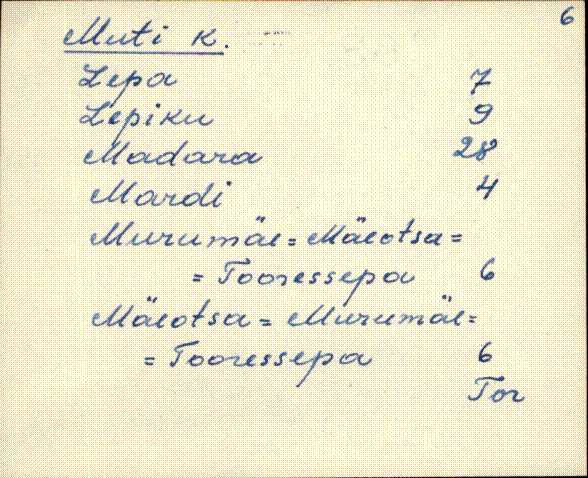 6
Muti k.
Lepa 7
Lepiku 9
Madara 28
Mardi 4
Murumäe = Mäeotsa =
= Tooressepa 6
Mäeotsa = Murumäe =
= Tooressepa 6
Tor